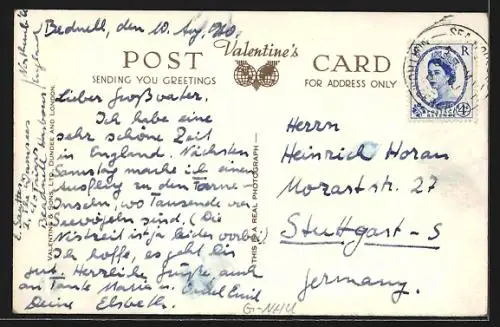 Bednell, den 10. Aug. 1960.
POST Valentine's CARD
SENDING YOU GREETINGS
FOR ADDRESS ONLY
Lieber Großvater.
Ich habe eine
sehr schöne Zeit
in England. Nächsten
Samstag mache ich einen
Ausflug zu den Farne-
Inseln, wo Tausende von
Seevögeln sind. (Die
Nistzeit ist ja leider vorbei.)
Ich hoffe, es geht dir
gut. Herzliche Grüße auch
an Tante Maria u. Onkel Emil
Deine Elsbeth.
VALENTINE & SONS, LTD., DUNDEE AND LONDON.
THIS IS A REAL PHOTOGRAPH
Herrn
Heinrich Horan
Mozartstr. 27
Stuttgart-S
Germany.
England
G-NHU